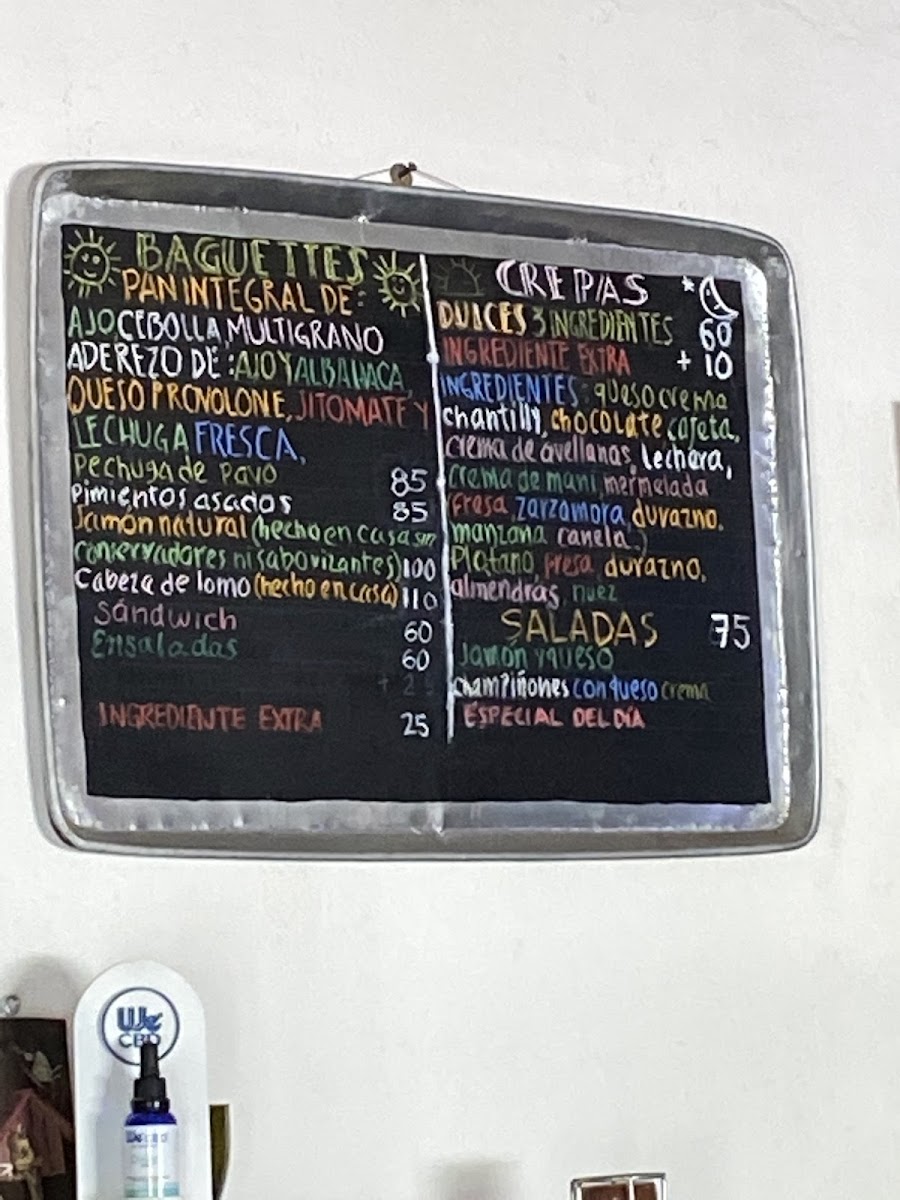 BAGUETTES
PAN INTEGRAL DE:
AJO CEBOLLA, MULTIGRANO
ADEREZO DE: AJO Y ALBAHACA,
QUESO PROVOLONE, JITOMATE Y
LECHUGA FRESCA,
Pechuga de Pavo 85
Pimientos asados 85
Jamon natural (hecho en casa sin
conservadores ni saborizantes) 100
Cabeza de lomo (hecho en casa) 110
Sándwich 60
Ensaladas 60
INGREDIENTE EXTRA 25
CREPAS *
DULCES 3 INGREDIENTES 60
INGREDIENTE EXTRA + 10
INGREDIENTES: queso crema
chantilly, chocolate cajeta,
crema de avellanas, lechera,
crema de maní, mermelada
(fresa, zarzamora, durazno.
manzana canela.)
Platano fresa durazno.
almendras, nuez
SALADAS 75
Jamón y queso
champiñones con queso crema
ESPECIAL DEL DÍA
We
CBD